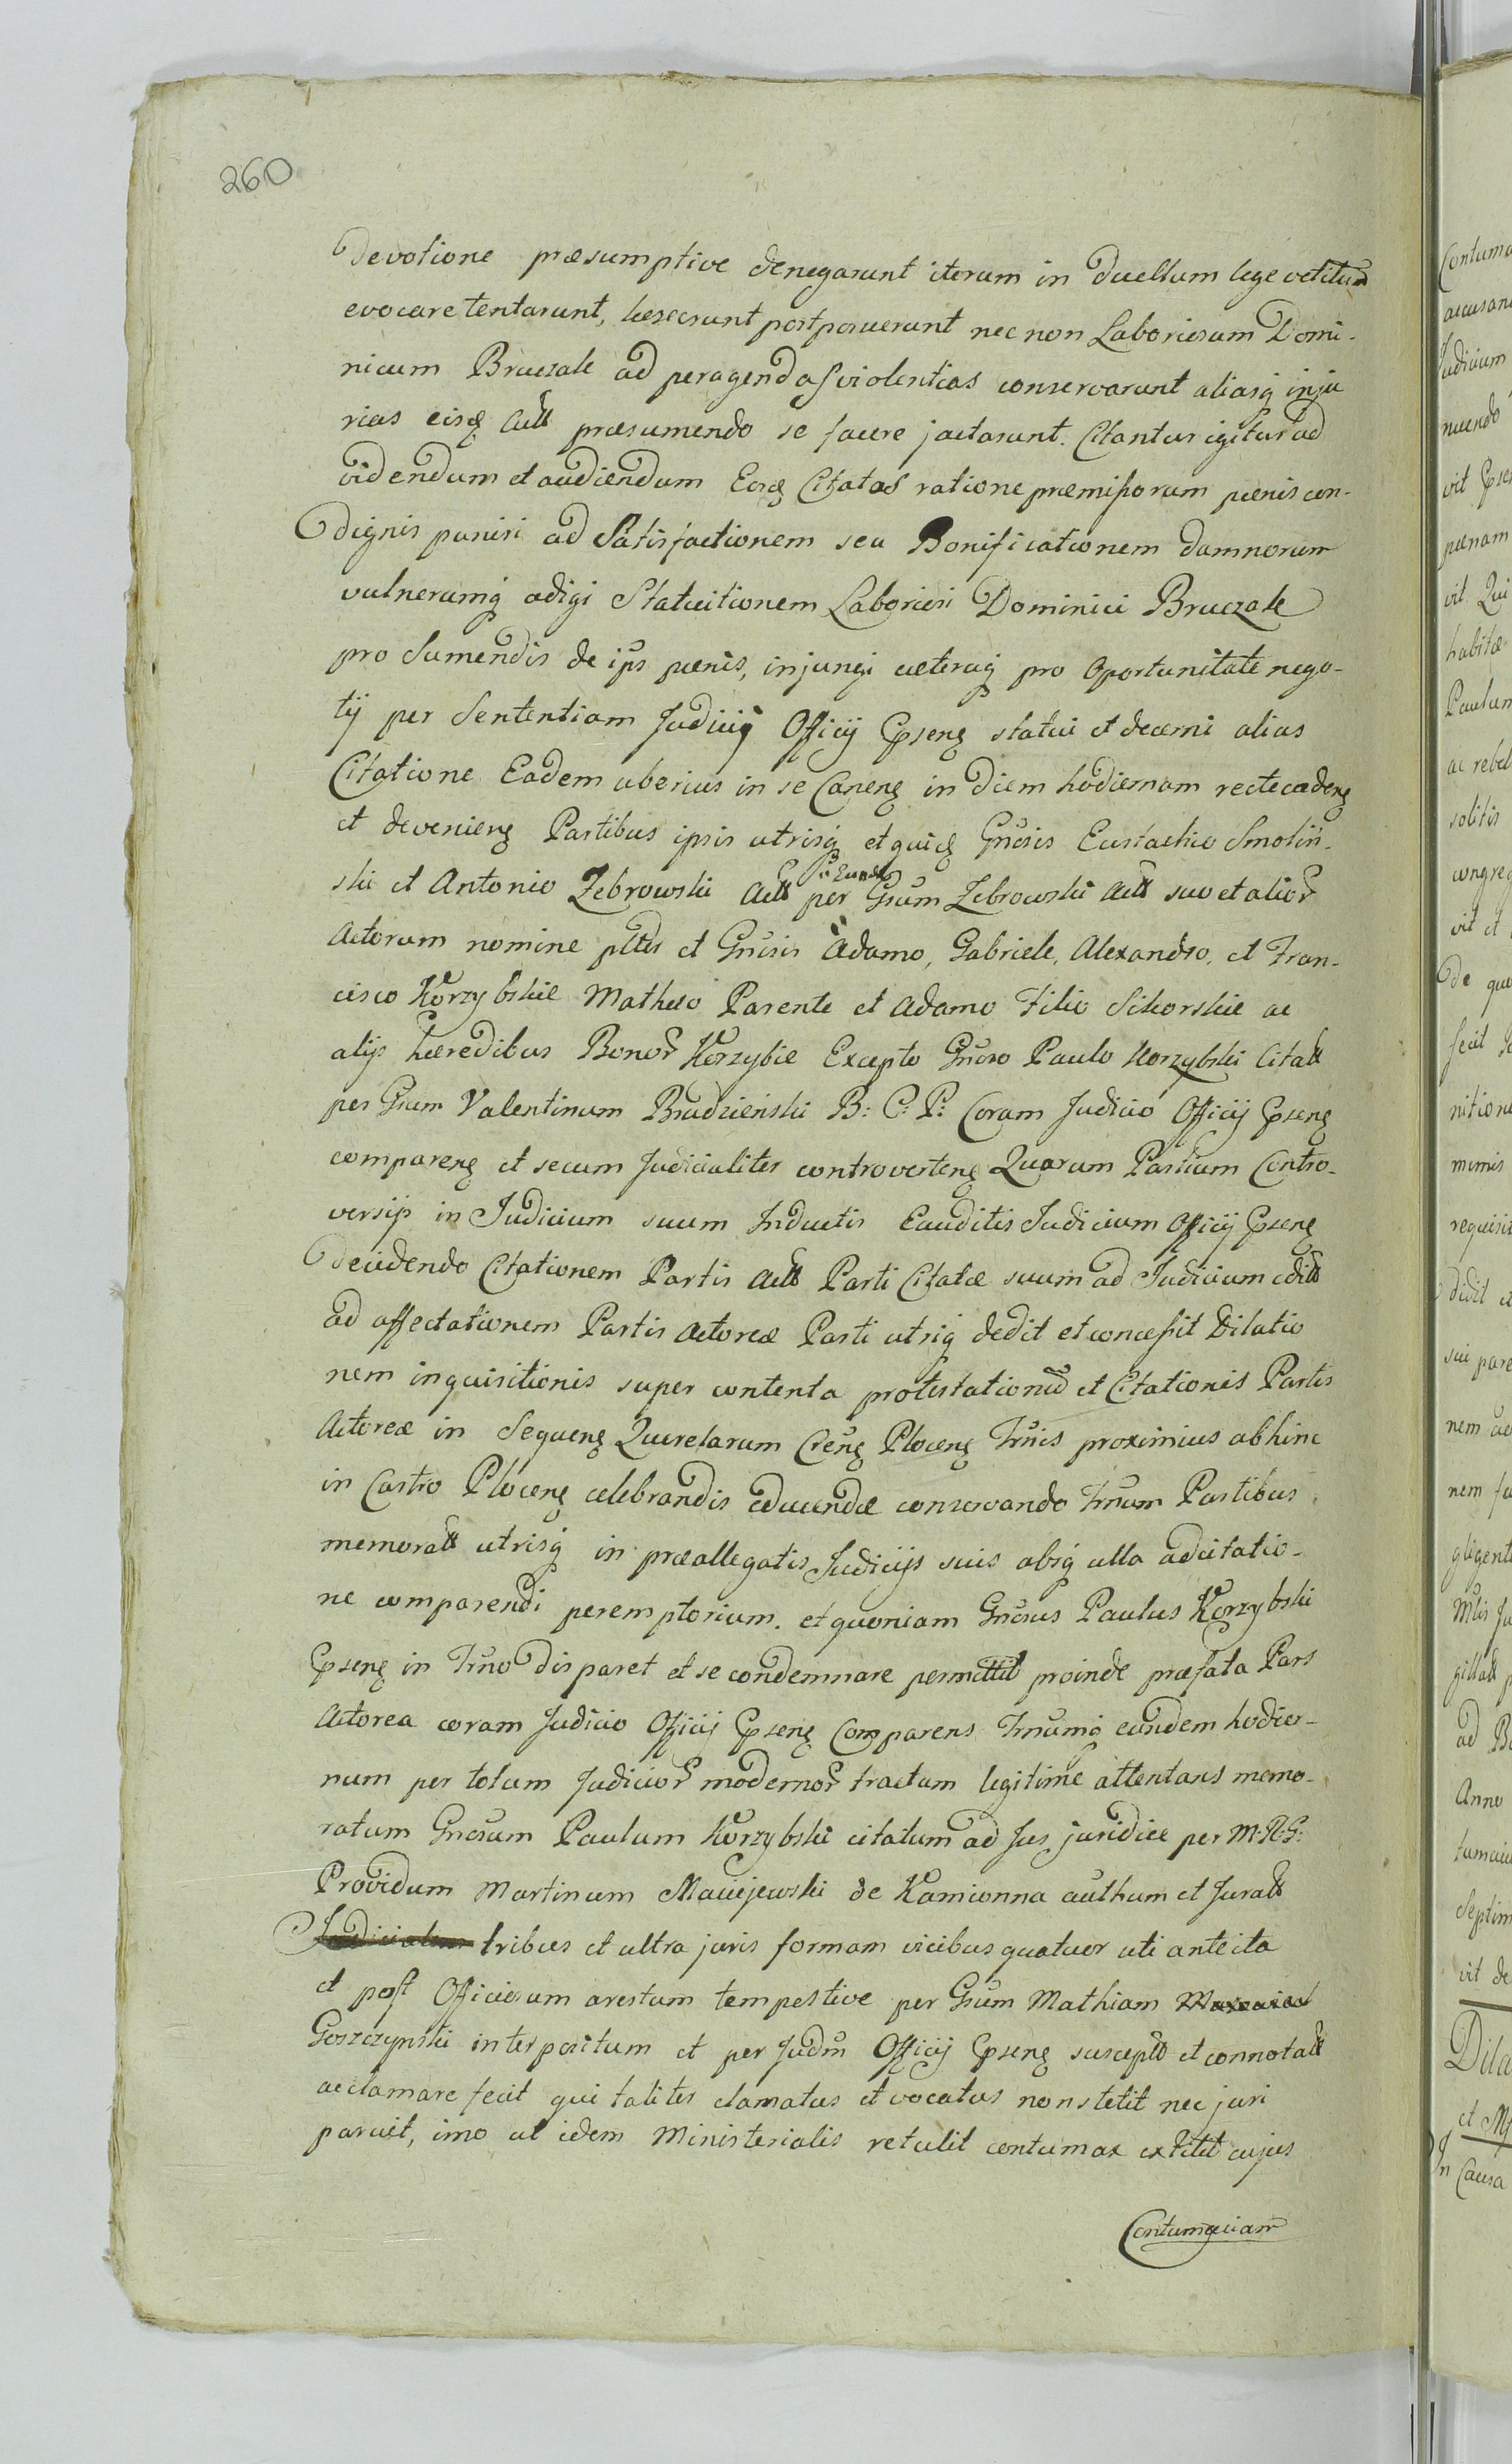 260
Devotione præsumptive denegarunt iterum in Duellum lege vetitum
evocare tentarunt, læserunt postposuerunt nec non Laboriosum Domi-
nicum Bruczale ad peragendas violentias conservarunt aliasq inju
rias eisq Actt præsumendo se facere jactarunt. Citantur igitur ad
videndum et audiendum Eosq Citatos ratione præmissorum pœnis con-
dignis puniri ad Satisfactionem seu Bonificationem damnorum
vulnerumq adigi Statuitionem Laboriosi Dominici Bruczale
pro Sumendis de ips pœnis, injungi cæteraq pro Oportunitate nego-
tij per Sententiam Judicij Officij Gpseng statui et decerni alias
Citatione Eadem uberius in se Canens in diem hodiernam recte cadens
et deveniens Partibus ipsis utrisq et quidem Gnosis Eustachio Smoliń-
ski et Antonio Zebrowski Actt per Eund Gsum Zebrowski Actt suo et alior
Actorum nomine pttis et Gnosis Adamo, Gabriele, Alexandro, et Fran-
cisco Korzybskie Matheo Parente et Adamo Filio Sikorskie ac
alijs hæredibus Bonor Korzybie Excepto Gnoso Paulo Korzybski Citatt
per Gsum Valentinum Brudzieński B: C: P: Coram Judicio Officij Gpseng
compareng et secum Judicialiter controverteng Quarum Partium Contro-
versijs in Judicium suum Inductis Exauditis Judicium Officij Gpseng
Decidendo Citationem Partis Actt Parti Citatæ suum ad Judicium editt
ad affectationem Partis Actoreæ Parti utriq dedit et concessit Dilatio
nem inquisitionis super contenta protestationum et Citationis Partis
Actoreæ in Sequeng Querelarum Creng Ploceng Trnis proximius abhinc
in Castro Ploceng celebrandis educendæ conservando Trnum Partibus
memoratt utrisq in præallegatis Judicijs suis absq ulla adcitatio-
ne comparendi peremptorium. et quoniam Gnosus Paulus Korzybski
Gpseng in Trno disparet et se condemnare permittit proinde præfata Pars
Actorea coram Judicio Officij Gpseng Comparens Trnumq eundem hodier-
num per totum Judicior modernor tractum legitime attentans memo-
ratum Gnosum Paulum Korzybski citatum ad Jus juridice per M: R: G:
Providum Martinum Maciejewski de Kamionna authum et Juratt
Judicialem tribus et ultra juris formam vicibus quatuor uti ante ita
et post Officiosum arestum tempestive per Gsum Mathiam
Goszczynski interpositum et per Judm Officij Gpseng susceptt et connotatt
acclamare fecit qui taliter clamatus et vocatus non stetit nec juri
paruit, imo ut idem Ministerialis retulit contumax extitit cujus
Contumaciam